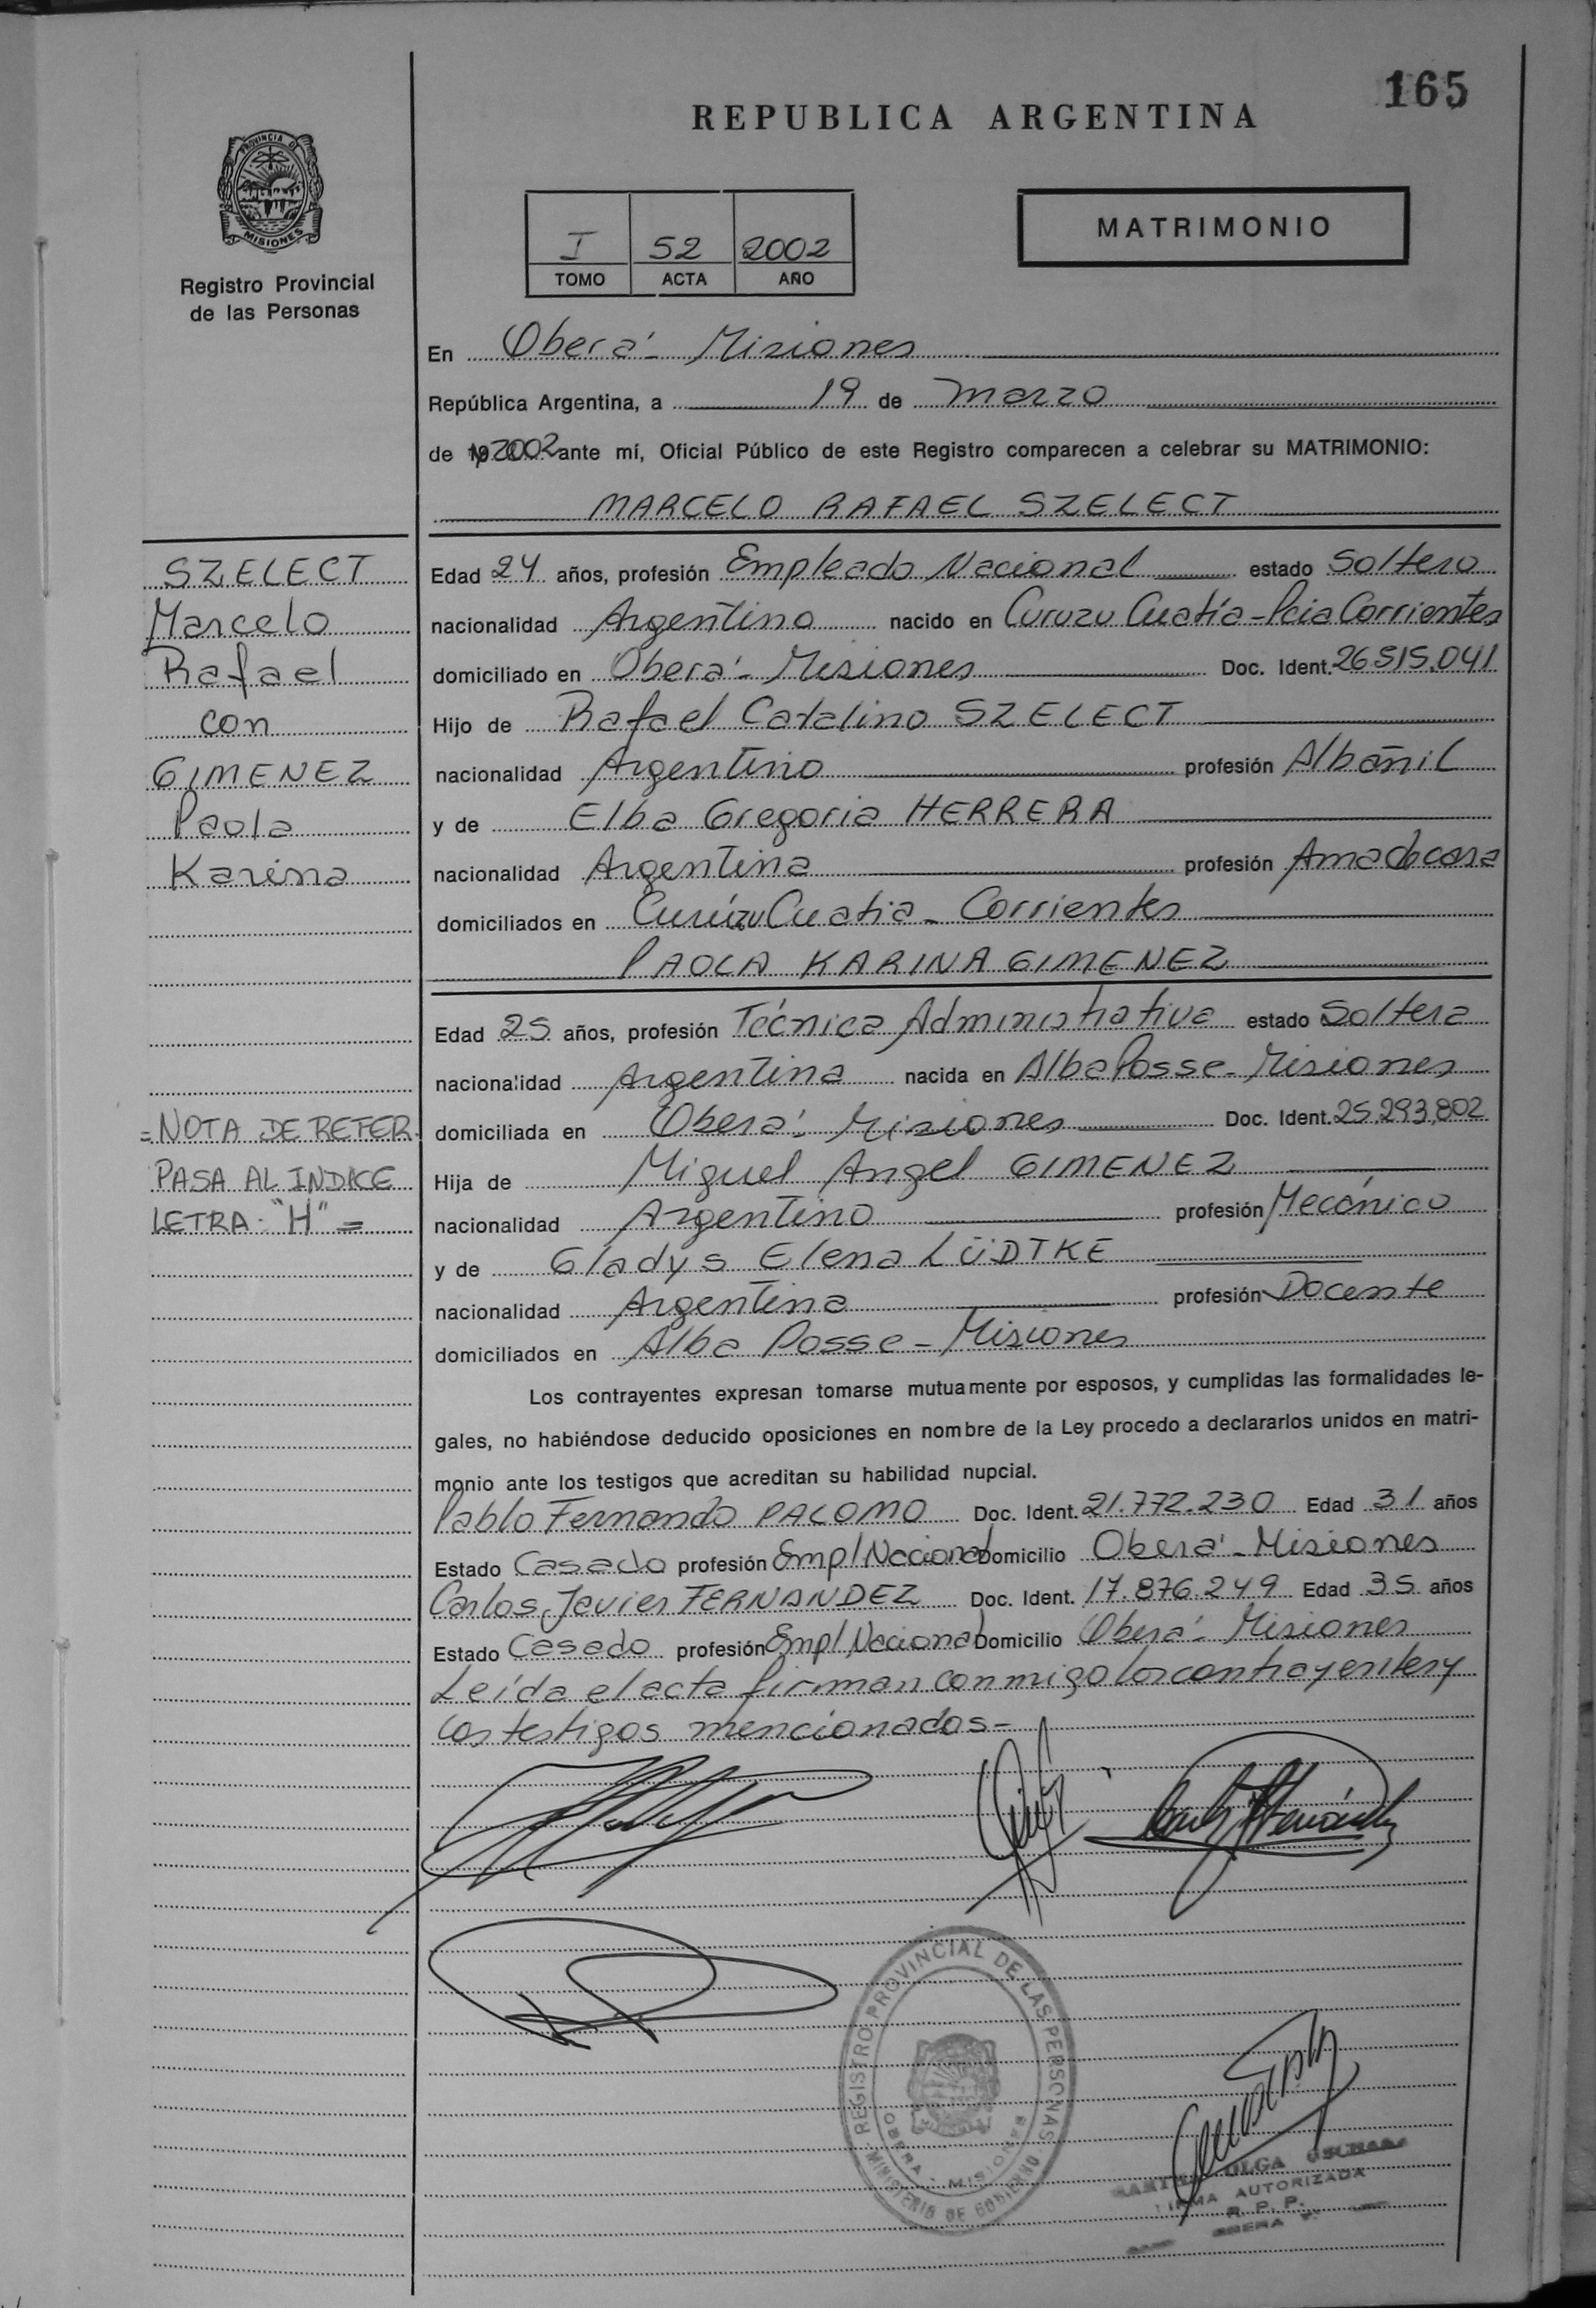 165
REPUBLICA ARGENTINA
PROVINCIA DE
MISIONES
Registro Provincial
de las Personas
I 52 2002
TOMO ACTA AÑO
MATRIMONIO
En Oberá - Misiones
República Argentina, a 19 de marzo
de 19 2002 ante mí, Oficial Público de este Registro comparecen a celebrar su MATRIMONIO:
MARCELO RAFAEL SZELECT
SZELECT
Marcelo
Rafael
con
GIMENEZ
Paola
Karina
Edad 24 años, profesión Empleado Nacional estado Soltero
nacionalidad Argentino nacido en Curuzu Cuatía - Pcia Corrientes
domiciliado en Oberá - Misiones Doc. Ident. 26.515.041
Hijo de Rafael Catalino SZELECT
nacionalidad Argentino profesión Albañil
y de Elba Gregoria HERRERA
nacionalidad Argentina profesión Ama de casa
domiciliados en Curúzu Cuatia - Corrientes
PAOLA KARINA GIMENEZ
Edad 25 años, profesión Técnica Administrativa estado Soltera
nacionalidad Argentina nacida en Alba Posse - Misiones
domiciliada en Oberá - Misiones Doc. Ident. 25.293.802
Hija de Miguel Angel GIMENEZ
nacionalidad Argentino profesión Mecánico
y de Gladys Elena LÜDTKE
nacionalidad Argentina profesión Docente
domiciliados en Alba Posse - Misiones
= NOTA DE REFER.
PASA AL INDICE
LETRA: "H" =
Los contrayentes expresan tomarse mutuamente por esposos, y cumplidas las formalidades le-
gales, no habiéndose deducido oposiciones en nombre de la Ley procedo a declararlos unidos en matri-
monio ante los testigos que acreditan su habilidad nupcial.
Pablo Fernando PALOMO Doc. Ident. 21.772.230 Edad 31 años
Estado Casado profesión Empl Nacional Domicilio Oberá - Misiones
Carlos Javier FERNANDEZ Doc. Ident. 17.876.249 Edad 35 años
Estado Casado profesión Empl Nacional Domicilio Oberá - Misiones
Leída el acta firman conmigo los contrayentes y
los testigos mencionados -
REGISTRO PROVINCIAL DE LAS PERSONAS
OBERA - MISIONES
MINISTERIO DE GOBIERNO
OLGA
FIRMA AUTORIZADA
R. P. P.
OBERA